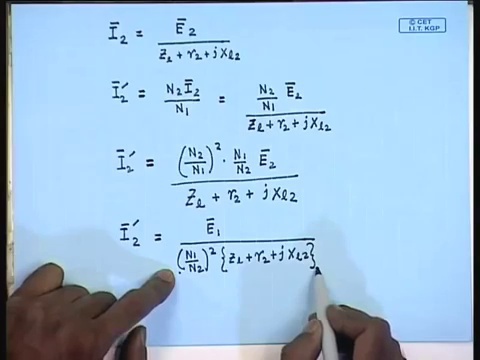 © CET
I.I.T. KGP
Ī₂ = Ē₂ / (Z_l + r₂ + jX_l2)
Ī₂′ = N₂Ī₂ / N₁ = (N₂/N₁) Ē₂ / (Z_l + r₂ + jX_l2)
Ī₂′ = (N₂/N₁)² · (N₁/N₂) Ē₂ / (Z_l + r₂ + jX_l2)
Ī₂′ = Ē₁ / (N₁/N₂)² {Z_l + r₂ + jX_l2}